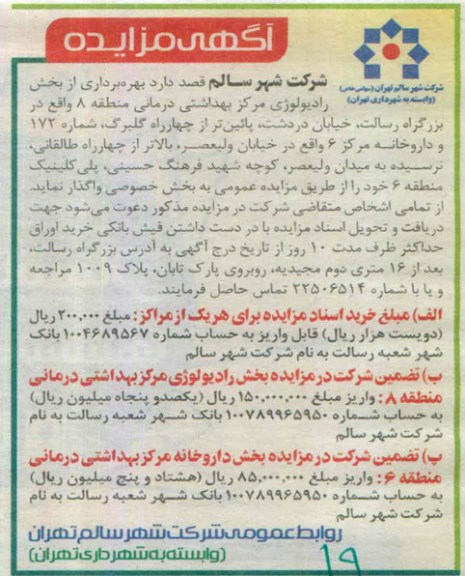 آگهی مزایده
شرکت شهر سالم تهران (سهامی خاص)
(وابسته به شهرداری تهران)
شرکت شهر سـالم قصد دارد بهره‌برداری از بخش
رادیولوژی مرکز بهداشتی درمانی منطقه ۸ واقع در
بزرگراه رسالت، خیابان دردشت، پائین‌تر از چهارراه گلبرگ، شماره ۱۷۲
و داروخانـه مرکز ۶ واقع در خیابان ولیعصـر، بالاتر از چهارراه طالقانی،
نرسـیده به میدان ولیعصر، کوچه شهید فرهنگ حسینی، پلی‌کلینیک
منطقه ۶ خود را از طریق مزایده عمومی به بخش خصوصی واگذار نماید.
از تمامی اشخاص متقاضی شرکت در مزایده مذکور دعوت می‌شود جهت
دریافت و تحویل اسناد مزایده با در دست داشتن فیش بانکی خرید اوراق
حداکثر ظرف مدت ۱۰ روز از تاریخ درج آگهی به آدرس بزرگراه رسالت،
بعد از ۱۶ متری دوم مجیدیه، روبروی پارک تابان، پلاک ۱۰۰۹ مراجعه
و یا با شماره ۲۲۵۰۶۵۱۴ تماس حاصل فرمایند.
الف) مبلغ خرید اسناد مزایده برای هر یک از مراکز: مبلغ ۲۰۰,۰۰۰ ریال
(دویست هزار ریال) قابل واریز به حساب شماره ۱۰۰۴۶۸۹۵۶۷ بانک
شهر شعبه رسالت به نام شرکت شهر سالم
ب) تضمین شرکت در مزایده بخش رادیولوژی مرکز بهداشتی درمانی
منطقه ۸: واریز مبلغ ۱۵۰,۰۰۰,۰۰۰ ریال (یکصدو پنجاه میلیون ریال)
به حساب شـماره ۱۰۰۷۸۹۹۶۵۹۵۰ بانک شهر شعبه رسالت به نام
شرکت شهر سالم
پ) تضمین شرکت در مزایده بخش داروخانه مرکز بهداشتی درمانی
منطقه ۶: واریز مبلغ ۸۵,۰۰۰,۰۰۰ ریال (هشتاد و پنج میلیون ریال)
به حساب شـماره ۱۰۰۷۸۹۹۶۵۹۵۰ بانک شـهر شعبه رسالت به نام
شرکت شهر سالم
روابط عمومی شرکت شهر سالم تهران
(وابسته به شهرداری تهران)
۱۹